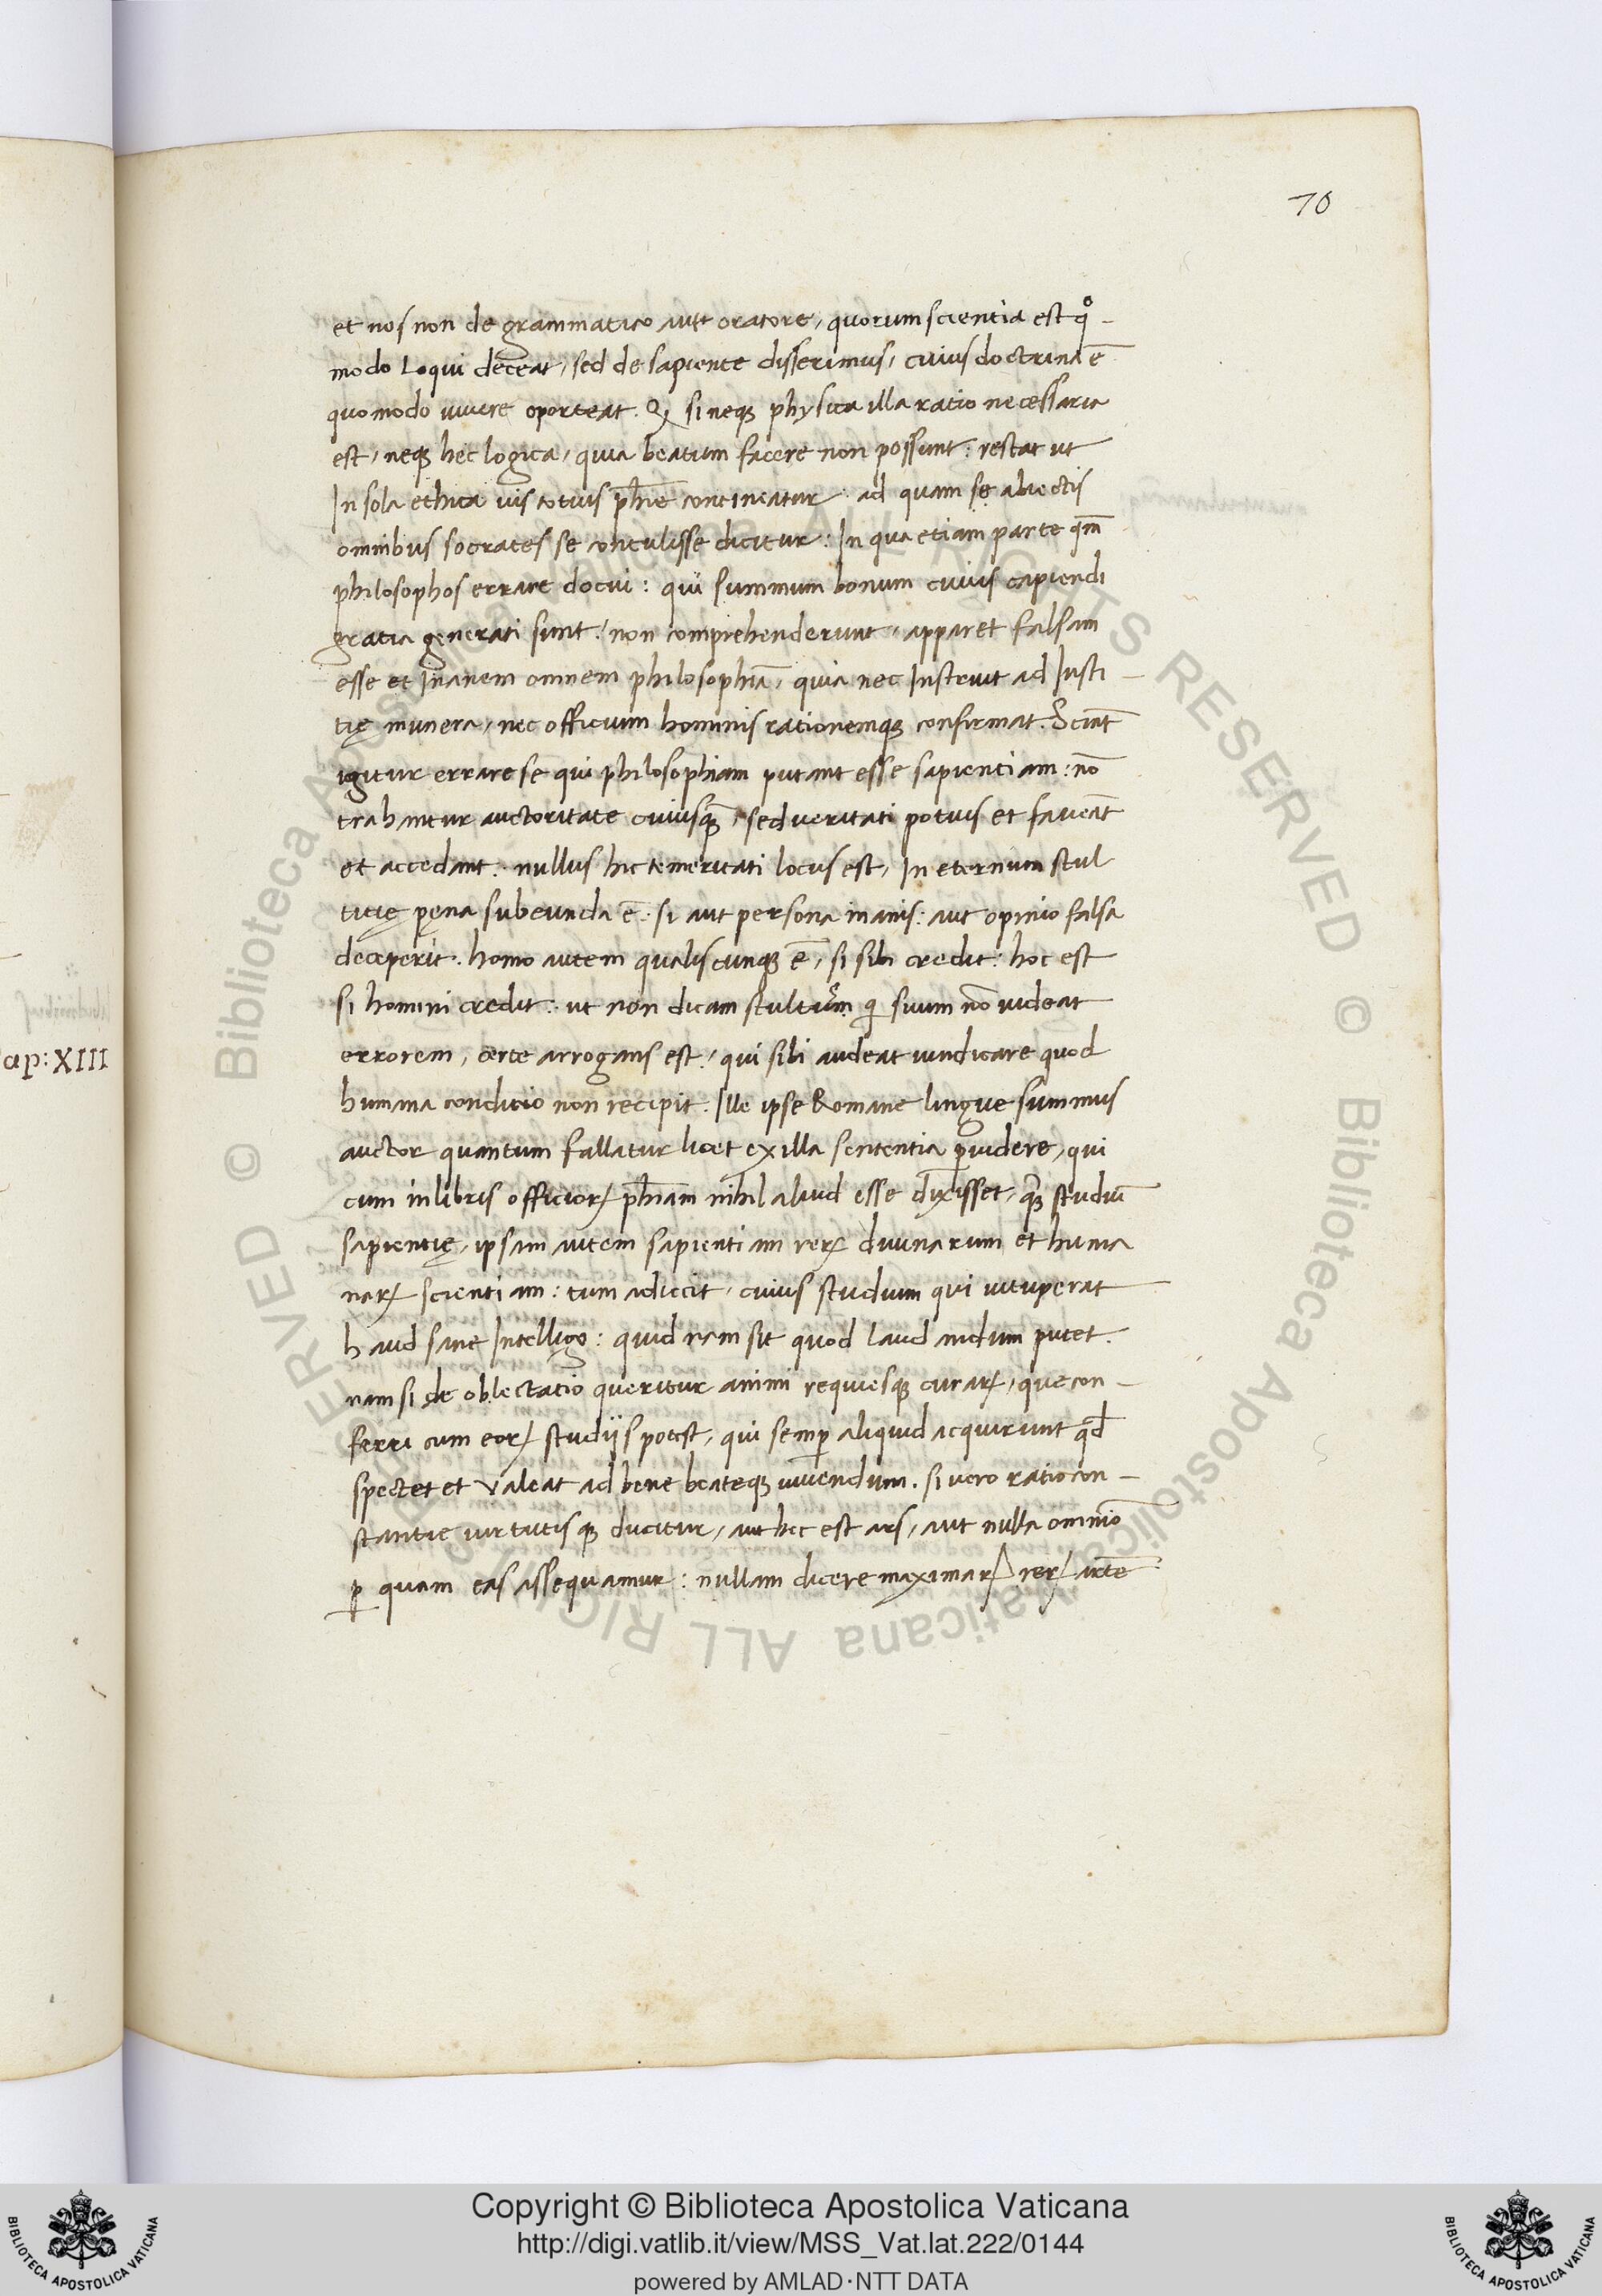 70
et nos non de grammatico aut oratore, quorum scientia est qͦ-
modo loqui deceat, sed de sapiente disserimus, cuius doctrina ē
quomodo vivere oporteat. Qꝫ si neqꝫ physica illa ratio necessaria
est, neqꝫ hec logica, quia beatum facere non possunt: restat ut
In sola ethica vis totius phīe contineatur: ad quam se abiectis
omnibus socrates se contulisse dicitur: In qua etiam parte qm̄
philosophos errare docui: qui summum bonum cuius capiendi
gratia generati sunt: non comprehenderunt, apparet falsam
esse et Inanem omnem philosophiā, quia nec Instruit ad Iusti-
tię munera, nec officium hominis rationemqꝫ confirmat. Sciāt
igitur errare se qui philosophiam putant esse sapientiam: nō
trahantur auctoritate cuiusqꝫ, sed veritati potius et faveāt
et accedant: nullus hic temeritati locus est, In eternum stul
titię pęna subeunda ē: si aut persona inanis: aut opinio falsa
deceperit. homo autem qualiscunqꝫ ē, si sibi credit: hoc est
si homini credit: ut non dicam stultum qͥ suum nō videat
errorem, certe arrogans est: qui sibi audeat vindicare quod
humana conditio non recipit. Ille ipse Romane lingue summus
auctor quantum fallatur licet ex illa sententia ꝑvidere, qui
cum in libris officioꝝ phīam nihil aliud esse dixisset, qꝫ studiū
sapientię, ipsam autem sapientiam reꝝ divinarum et huma
naꝝ scientiam: tum adiecit, cuius studium qui vituperat
haud sane Intelligo: quid nam sit quod laudandum putet.
nam si de oblectatio queritur animi requiesqꝫ curaꝝ, que con-
ferri cum eoꝝ studiis potest, qui semꝑ aliquid acquirunt qd̄
spectet et valeat ad bene beateqꝫ vivendum. si vero ratio con-
stantie virtutisqꝫ ducitur, aut hec est ars, aut nulla omnīo
ꝑ quam eas assequamur: nullam dicere maximaꝝ reꝝ artē
ap: XIII
Copyright © Biblioteca Apostolica Vaticana
http://digi.vatlib.it/view/MSS_Vat.lat.222/0144
powered by AMLAD·NTT DATA
BIBLIOTECA APOSTOLICA VATICANA
BIBLIOTECA APOSTOLICA VATICANA